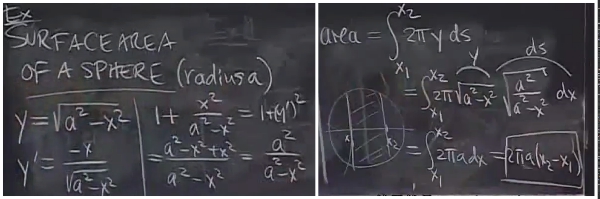 Ex
SURFACE AREA
OF A SPHERE (radius a)
y = √(a² - x²)
y' = -x / √(a² - x²)
1 + x² / (a² - x²) = 1 + (y')²
= (a² - x² + x²) / (a² - x²) = a² / (a² - x²)
area = ∫_{x₁}^{x₂} 2π y ds
y ds
= ∫_{x₁}^{x₂} 2π √(a² - x²) √(a² / (a² - x²)) dx
x₁ x₂
= ∫_{x₁}^{x₂} 2π a dx = 2π a (x₂ - x₁)